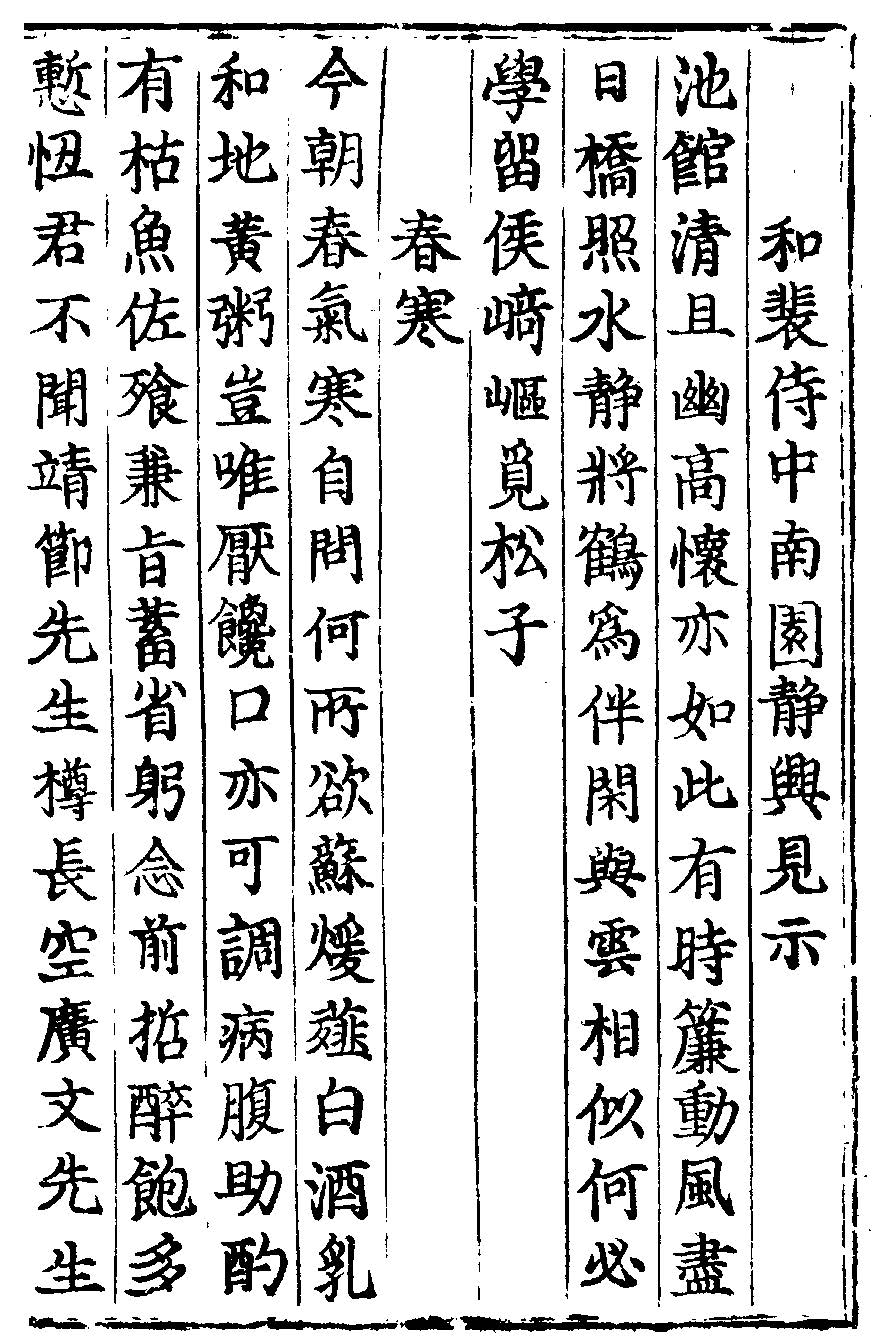 和裴侍中南園静興見示
池館清且幽高懷亦如此有時簾動風盡
日橋照水静將鶴爲伴閑與雲相似何必
學留侯崎嶇覓松子
春寒
今朝春氣寒自問何所欲蘇煖薤白酒乳
和地黄粥豈唯厭饞口亦可調病腹助酌
有枯魚佐飱兼旨蓄省躬念前哲醉飽多
慙忸君不聞靖節先生樽長空廣文先生